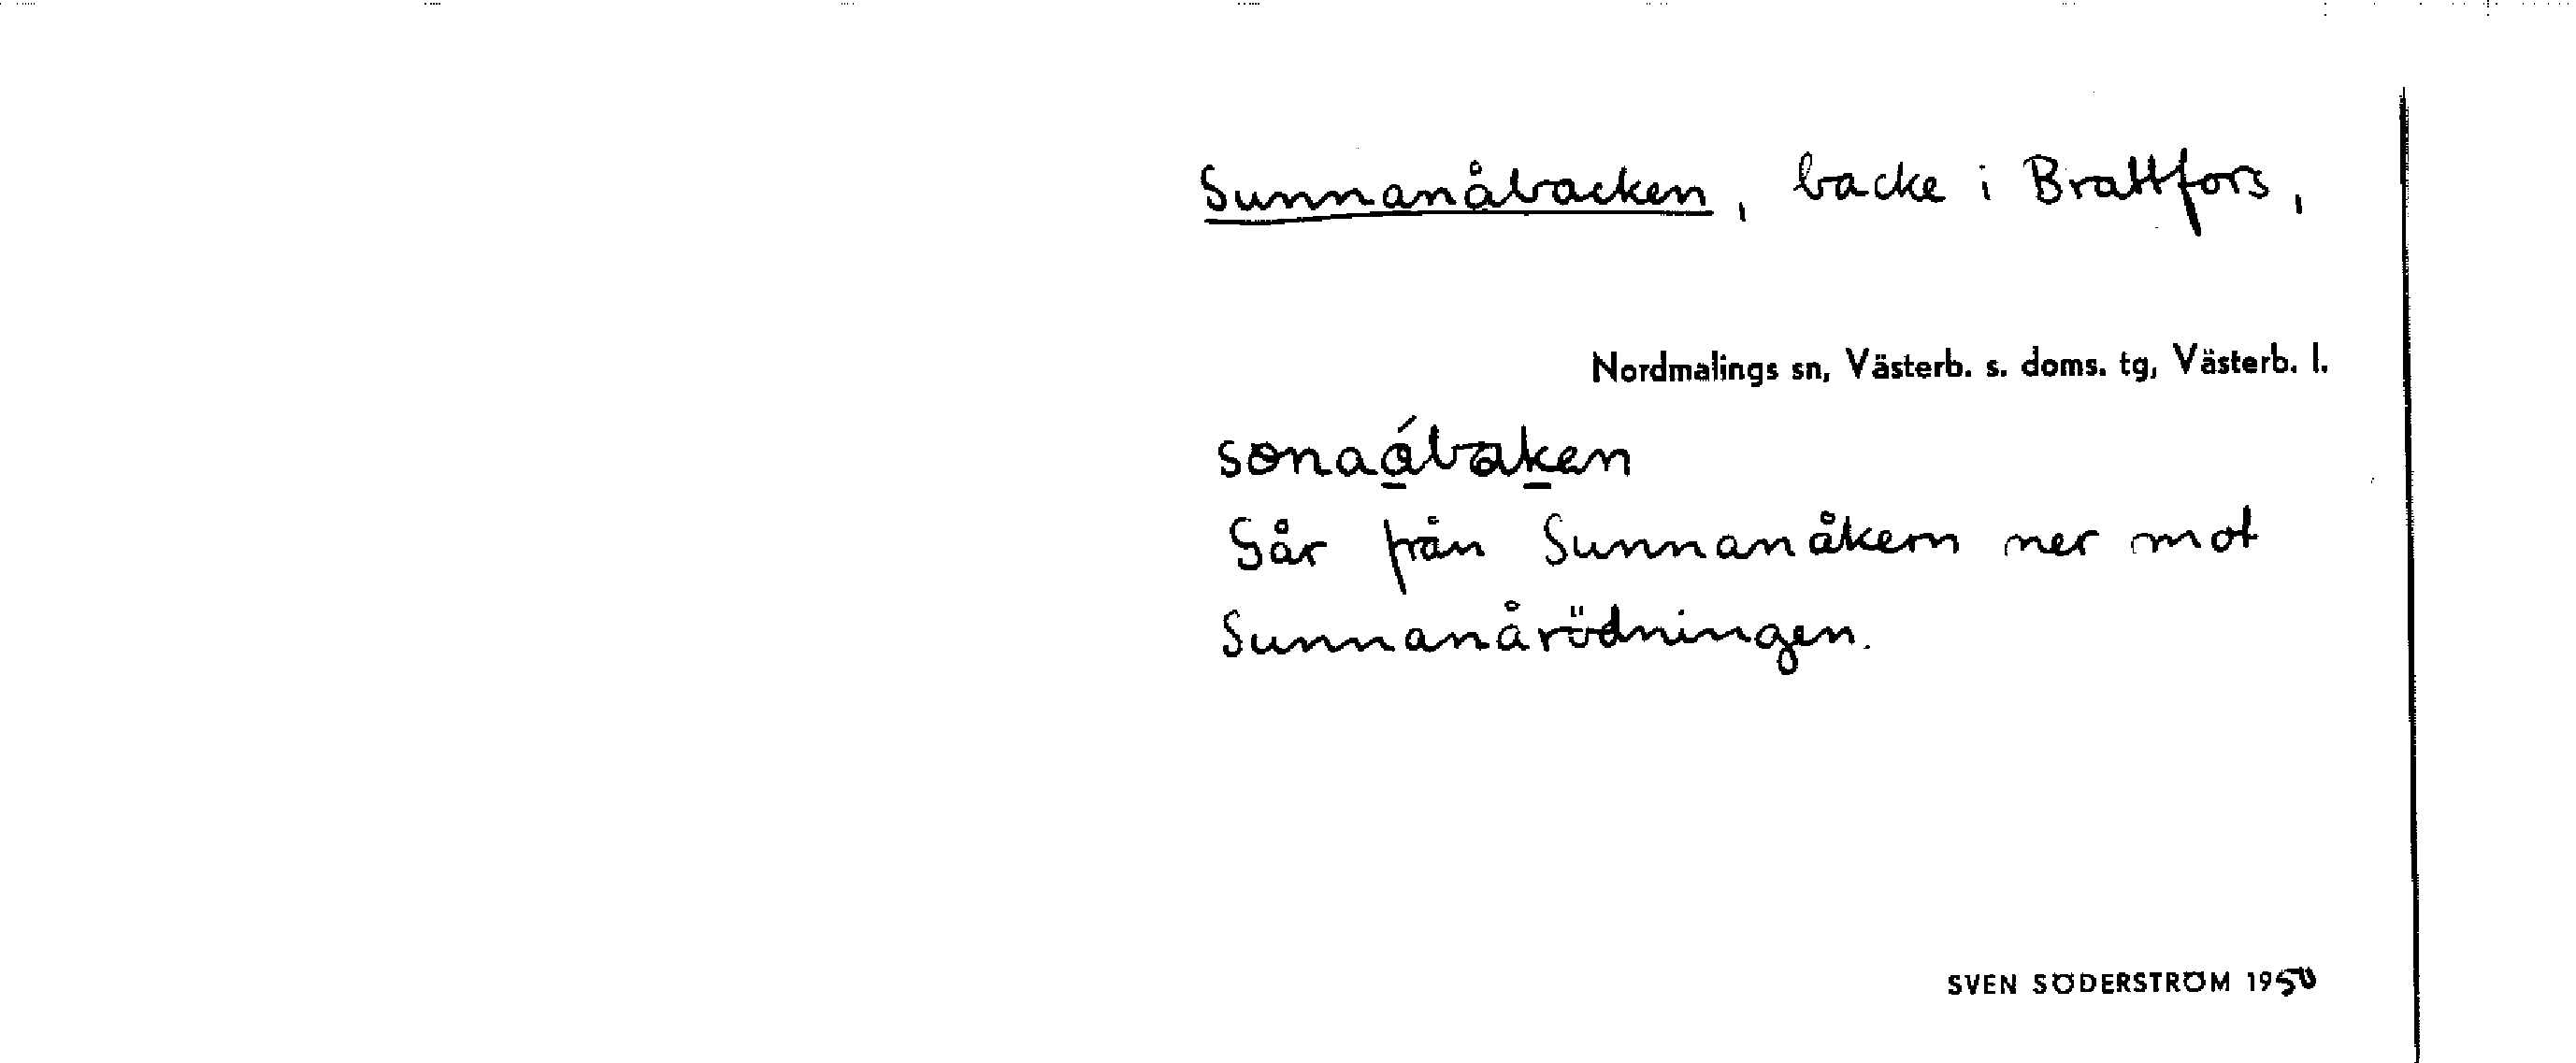 Sunnanåbacken, backe i Brattfors,
Nordmalings sn, Västerb. s. doms. tg, Västerb. l.
Går från Sunnanåkern ner mot
Sunnanårödningen.
SVEN SÖDERSTRÖM 1950